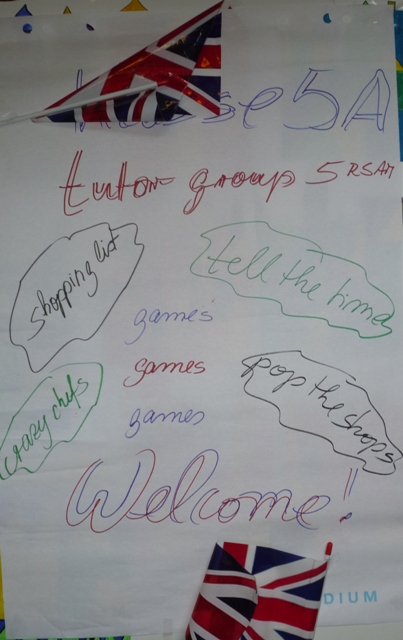 5A
tutor group 5 RSAM
shopping list
tell the time
games
games
crazy chefs
pop the shops
games
Welcome!
DIUM